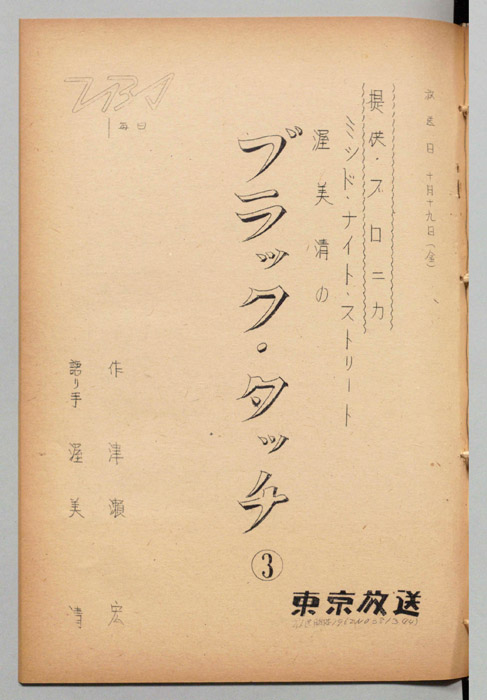 放送日 十月十九日(金)
提供・ブロニカ
ミッド・ナイト・ストリート
渥美清の
ブラック・タッチ
③
TBS
毎日
作 津瀬宏
語り手 渥美清
東京放送